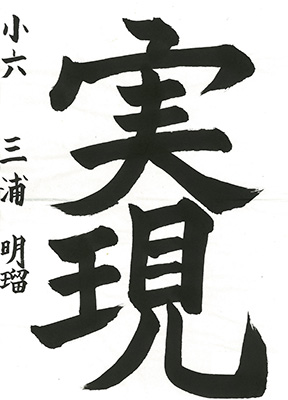 実現
小六 三浦明瑠